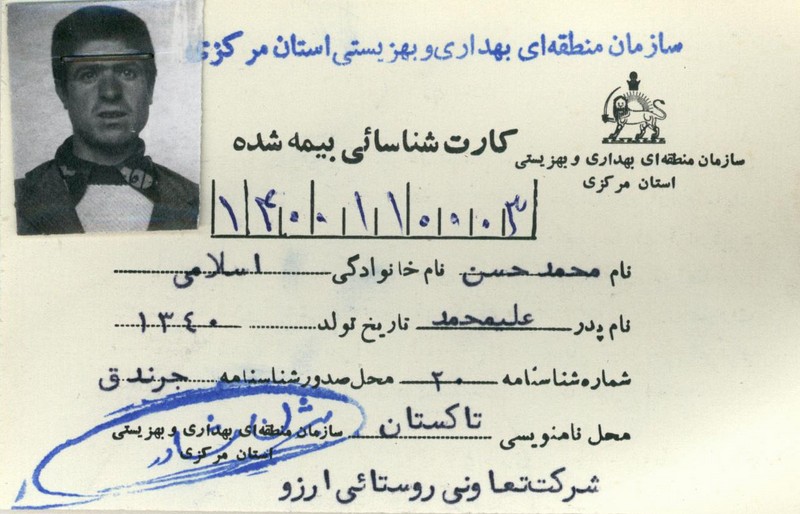 سازمان منطقه‌ای بهداری و بهزیستی استان مرکزی
کارت شناسائی بیمه شده
سازمان منطقه‌ای بهداری و بهزیستی
استان مرکزی
۱۴۰۰۱۱۰۰۰۳
نام محمد حسن نام خانوادگی اسلامی
نام پدر علیمحمد تاریخ تولد ۱۳۴۰
شماره شناسنامه ۲۰ محل صدور شناسنامه جرندق
محل نامنویسی تاکستان
سازمان منطقه‌ای بهداری و بهزیستی
استان مرکزی
شرکت تعاونی روستائی ارزو